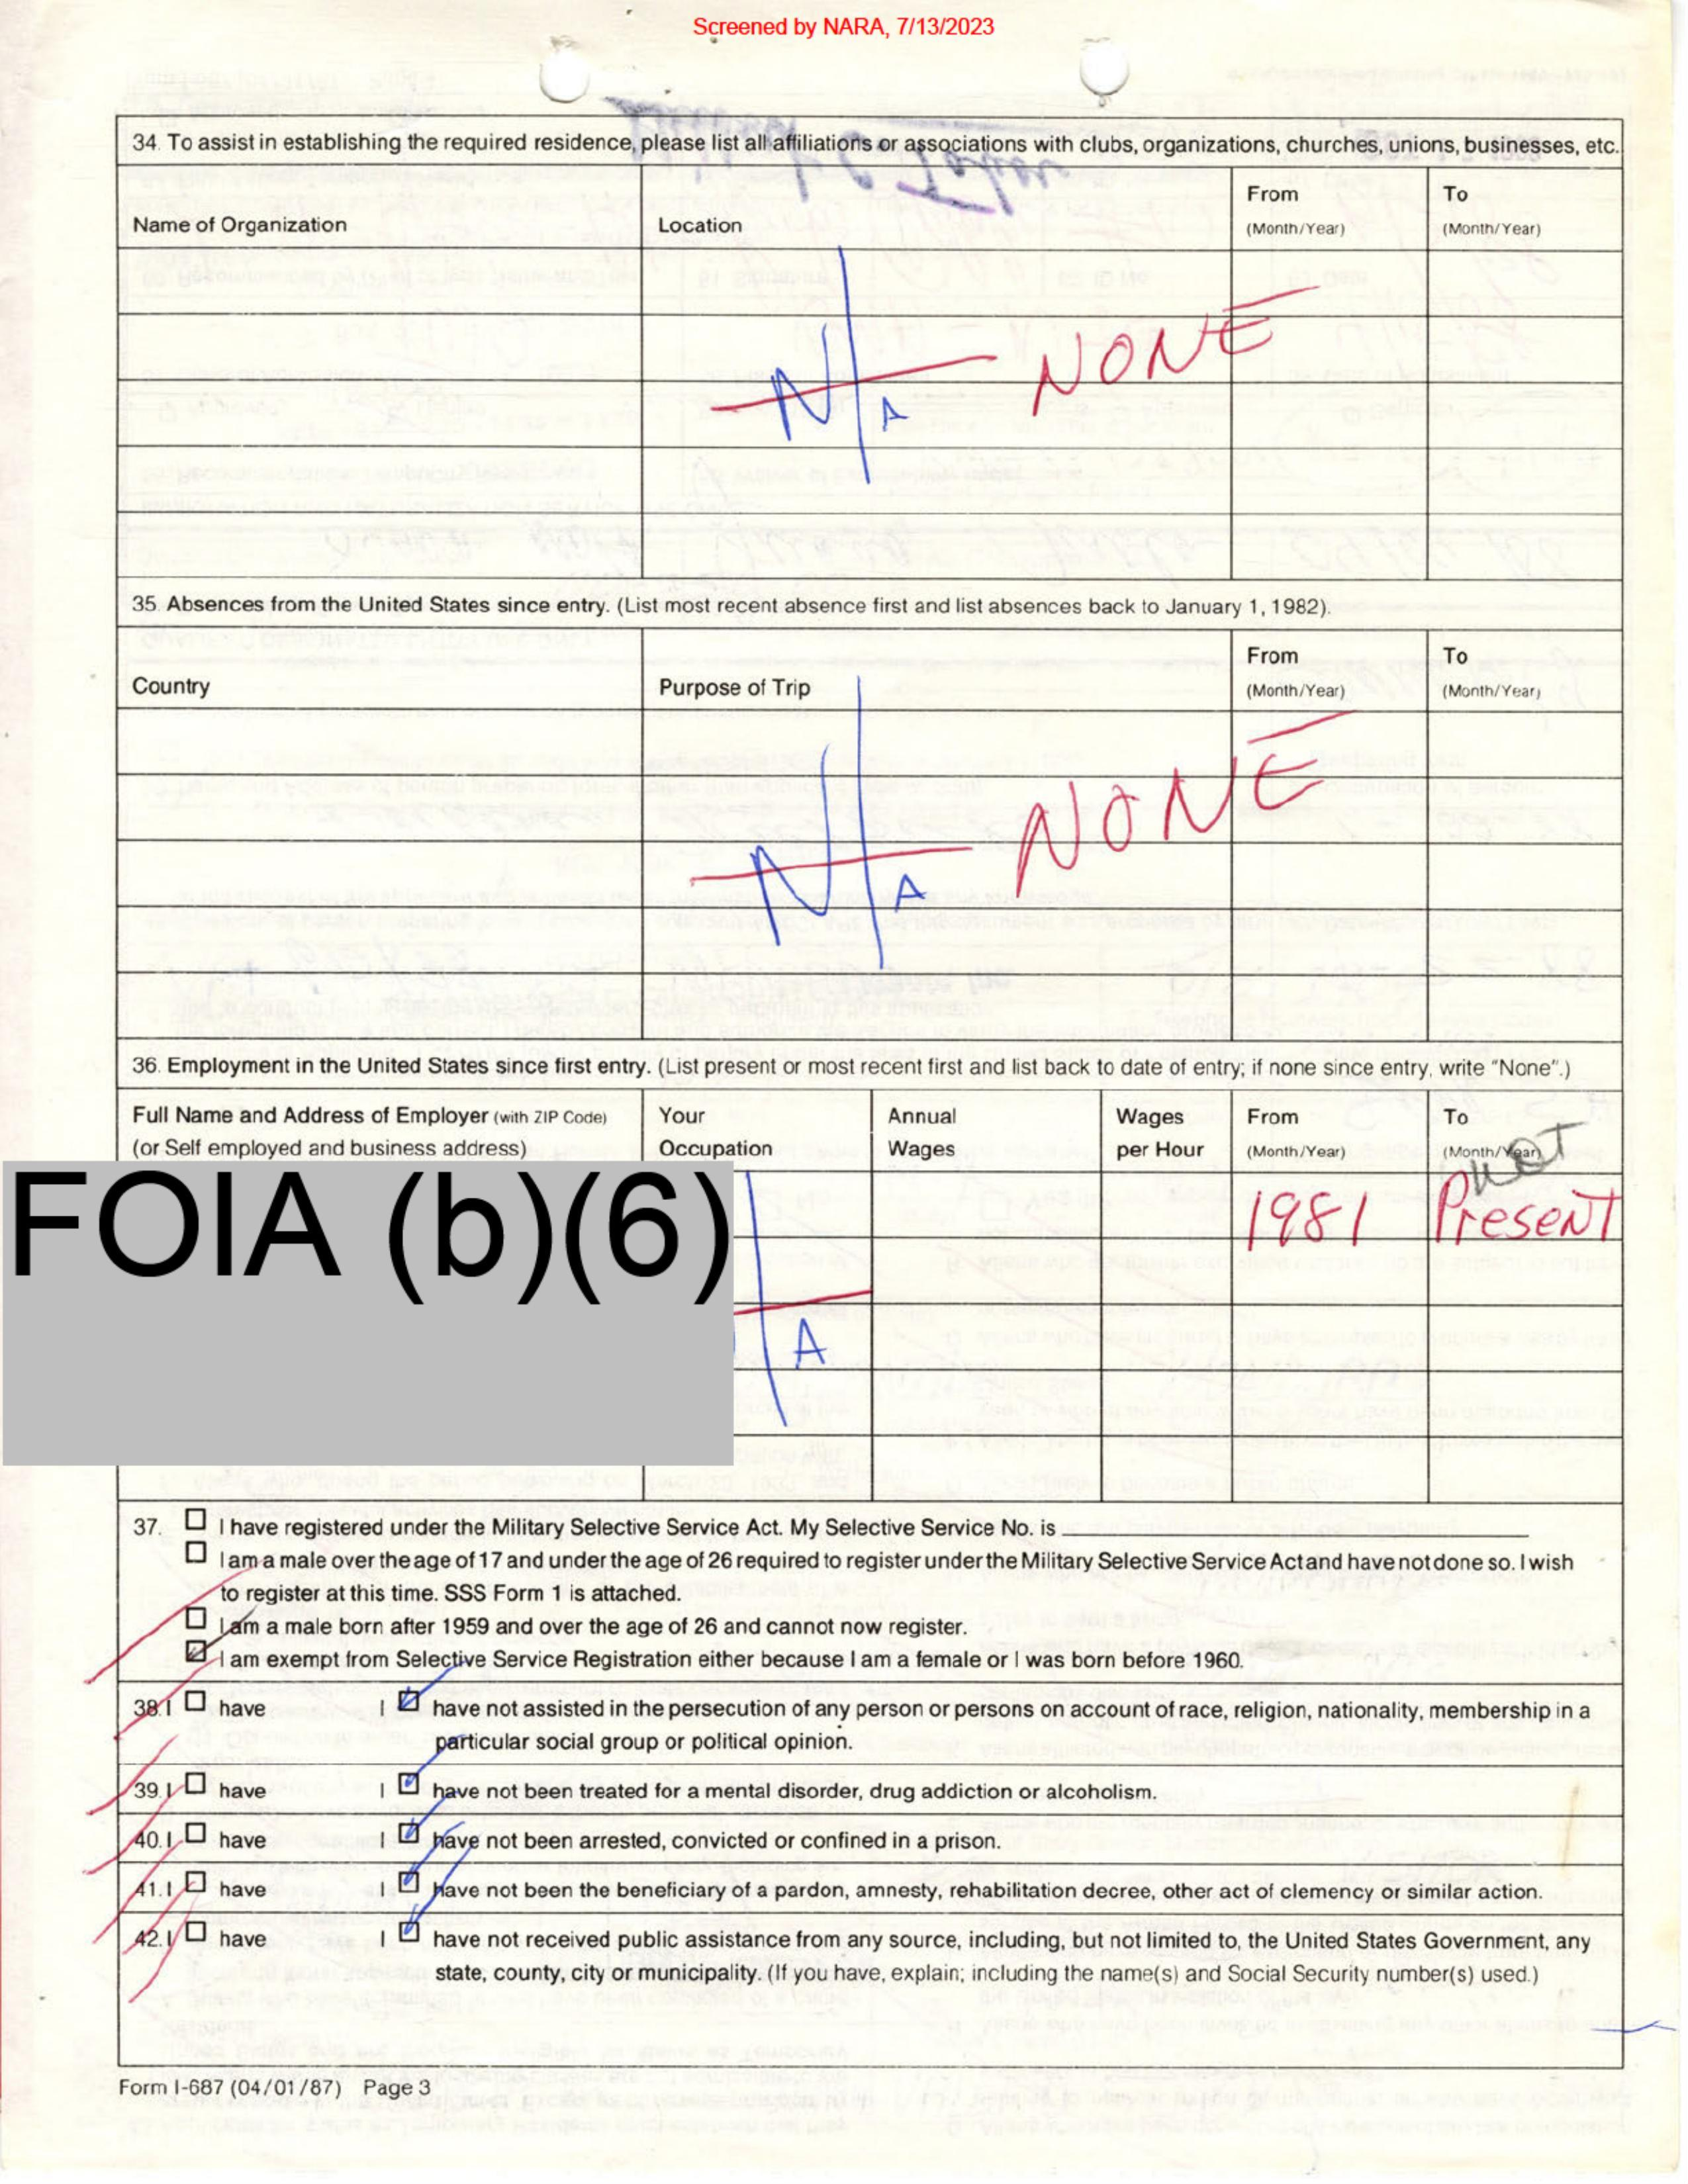 Screened by NARA, 7/13/2023
34. To assist in establishing the required residence, please list all affiliations or associations with clubs, organizations, churches, unions, businesses, etc.
Name of Organization Location From (Month/Year) To (Month/Year)
N/A NONE
35. Absences from the United States since entry. (List most recent absence first and list absences back to January 1, 1982).
Country Purpose of Trip From (Month/Year) To (Month/Year)
N/A NONE
36. Employment in the United States since first entry. (List present or most recent first and list back to date of entry; if none since entry, write "None".)
Full Name and Address of Employer (with ZIP Code) Your Annual Wages From To
(or Self employed and business address) Occupation Wages per Hour (Month/Year) (Month/Year)
not
FOIA (b)(6) 1981 Present
/A
37. I have registered under the Military Selective Service Act. My Selective Service No. is
I am a male over the age of 17 and under the age of 26 required to register under the Military Selective Service Act and have not done so. I wish
to register at this time. SSS Form 1 is attached.
I am a male born after 1959 and over the age of 26 and cannot now register.
I am exempt from Selective Service Registration either because I am a female or I was born before 1960.
38. I have I have not assisted in the persecution of any person or persons on account of race, religion, nationality, membership in a
particular social group or political opinion.
39. I have I have not been treated for a mental disorder, drug addiction or alcoholism.
40. I have I have not been arrested, convicted or confined in a prison.
41. I have I have not been the beneficiary of a pardon, amnesty, rehabilitation decree, other act of clemency or similar action.
42. I have I have not received public assistance from any source, including, but not limited to, the United States Government, any
state, county, city or municipality. (If you have, explain; including the name(s) and Social Security number(s) used.)
Form I-687 (04/01/87) Page 3